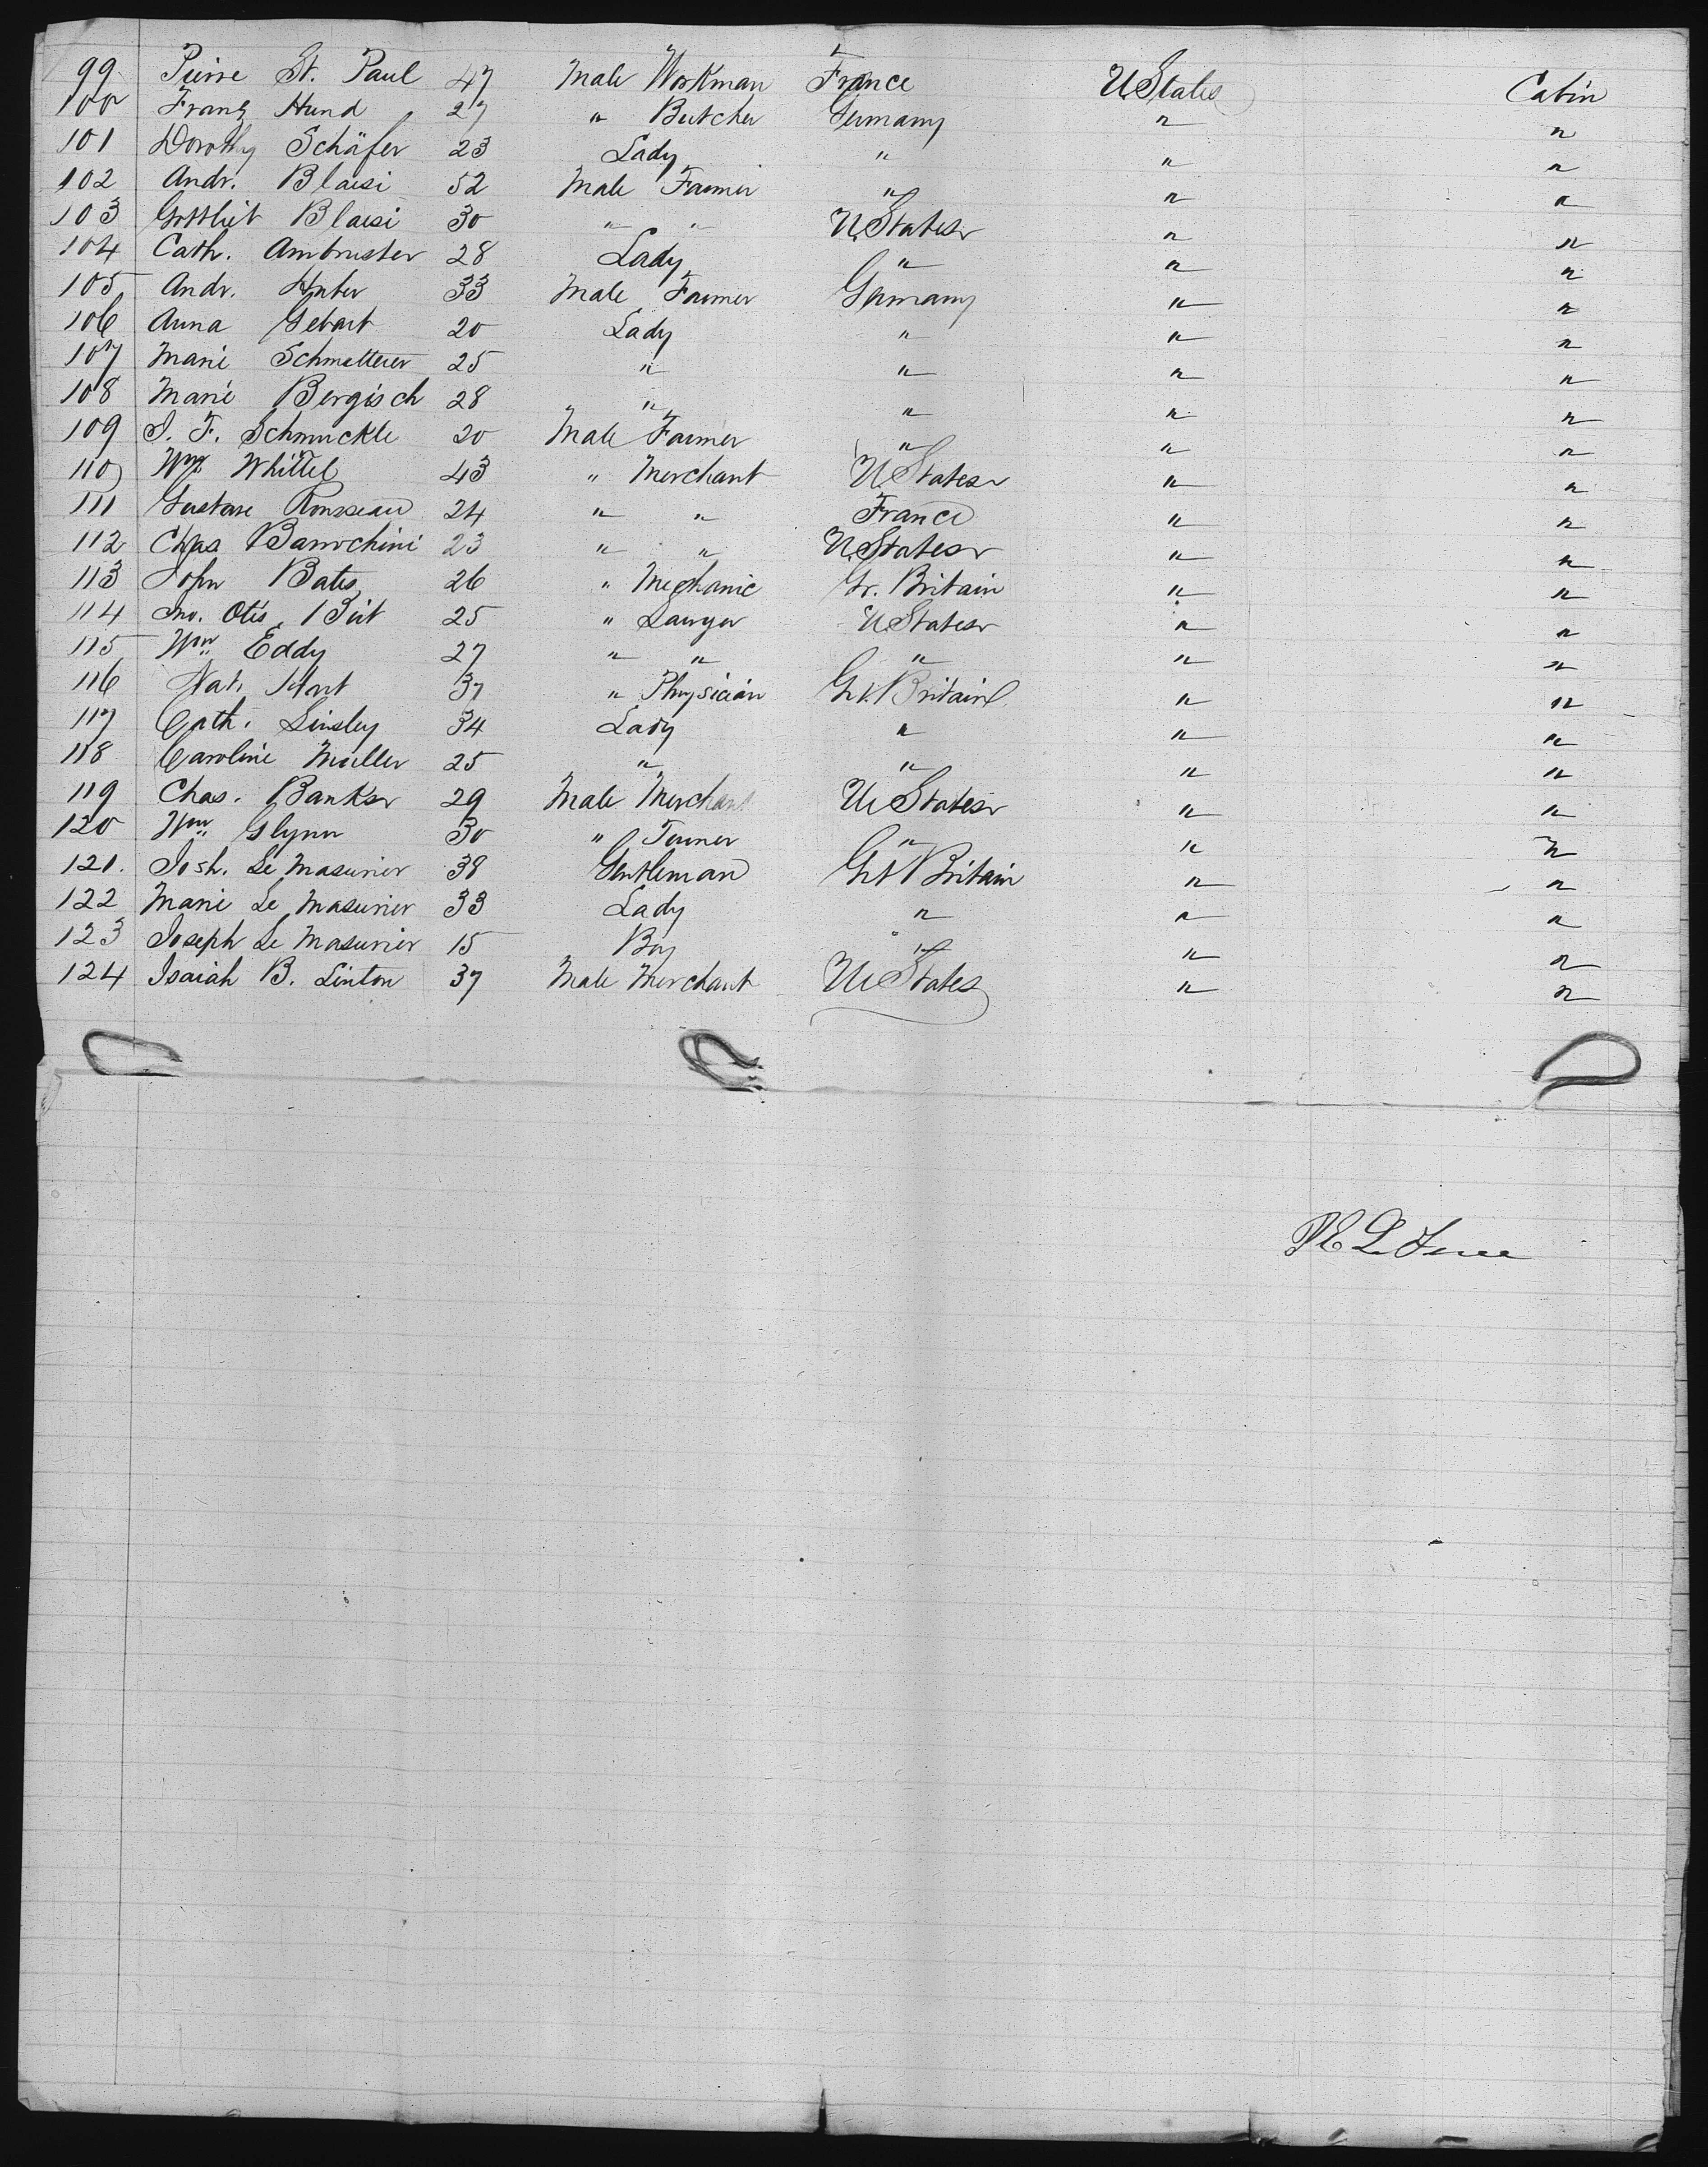 99 Pierre St. Paul 47 Male Workman France U States Cabin
100 Franz Hund 27 " Butcher Germany " "
101 Dorothy Schäfer 23 Lady " " "
102 Andr. Blaesi 52 Male Farmer " " "
103 Gottlieb Blaesi 30 " " U. States " "
104 Cath. Ambruster 28 Lady " " "
105 Andr. Huber 33 Male Farmer Germany " "
106 Anna Gebart 20 Lady " " "
107 Marie Schmetterer 25 " " " "
108 Marie Bergisch 28 " " " "
109 S. F. Schmuckle 20 Male Farmer " " "
110 Wm Whittel 43 " Merchant U. States " "
111 Gustave Rousseau 24 " " France " "
112 Chas Barrochini 23 " " U. States " "
113 John Bates 26 " Mechanic Gr. Britain " "
114 Jno. Otis 25 " Lawyer U States " "
115 Wm Eddy 27 " " " " "
116 Nat. 37 " Physician Gr. Britain " "
117 Cath. Linsley 34 Lady " " "
118 Caroline Muller 25 " " " "
119 Chas. Banks 29 Male Merchant U. States " "
120 Wm Glynn 30 " " " "
121. Josh. Le Masurier 38 Gentleman Gt Britain " "
122 Marie Le Masurier 33 Lady " " "
123 Joseph Le Masurier 15 Boy " " "
124 Isaiah B. Linton 37 Male Merchant U. States " "